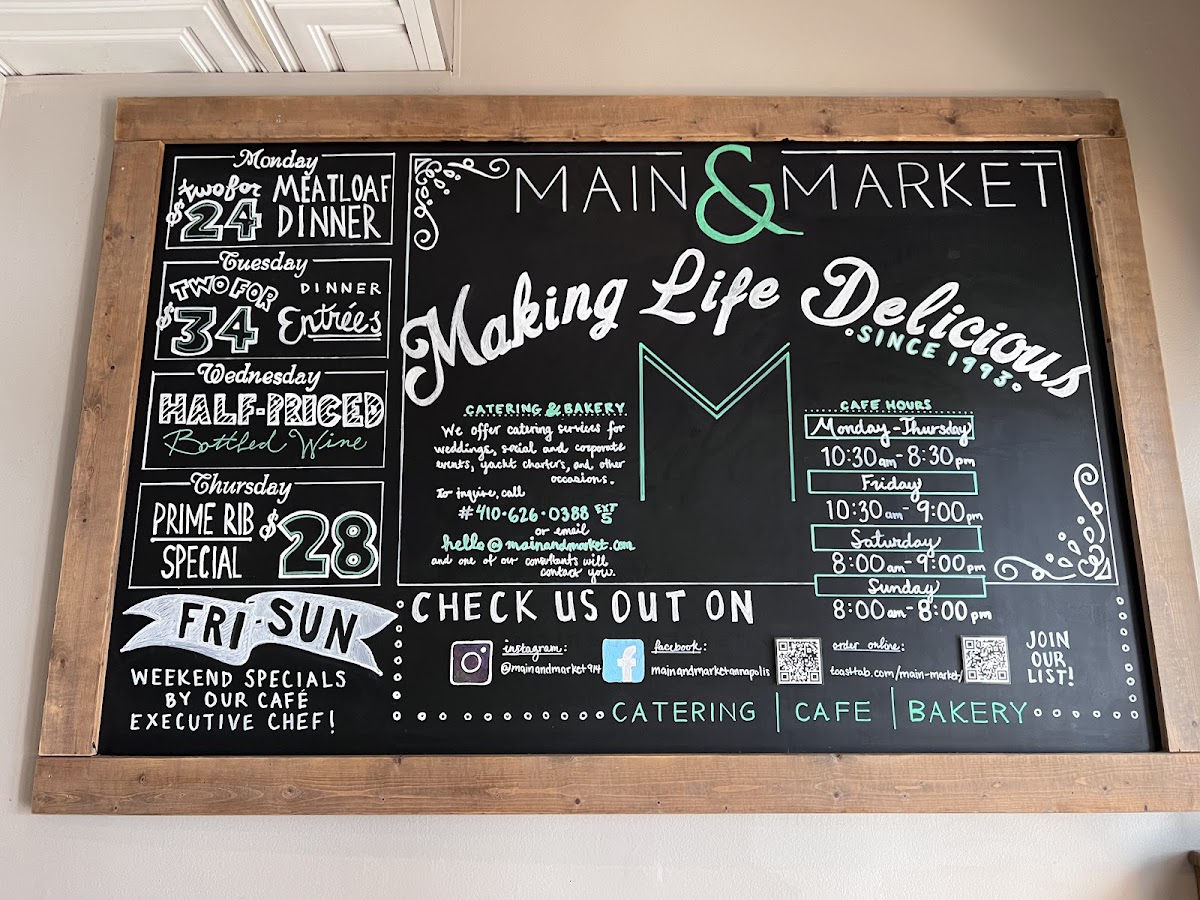 Monday
two for
$24
MEATLOAF
DINNER
Tuesday
TWO FOR
$34
DINNER
Entrées
Wednesday
HALF-PRICED
Bottled Wine
Thursday
PRIME RIB
SPECIAL
$28
FRI-SUN
WEEKEND SPECIALS
BY OUR CAFÉ
EXECUTIVE CHEF!
MAIN & MARKET
Making Life Delicious
SINCE 1993
CATERING & BAKERY
We offer catering services for
weddings, social and corporate
events, yacht charters, and other
occasions.
To inquire, call
#410-626-0388 EXT 5
or email
hello@mainandmarket.com
and one of our consultants will
contact you.
M
CAFE HOURS
Monday-Thursday
10:30am-8:30pm
Friday
10:30am-9:00pm
Saturday
8:00am-9:00pm
Sunday
8:00am-8:00pm
CHECK US OUT ON
instagram:
@mainandmarket914
facebook:
mainandmarketannapolis
order online:
toasttab.com/main-market/
JOIN
OUR
LIST!
CATERING | CAFE | BAKERY